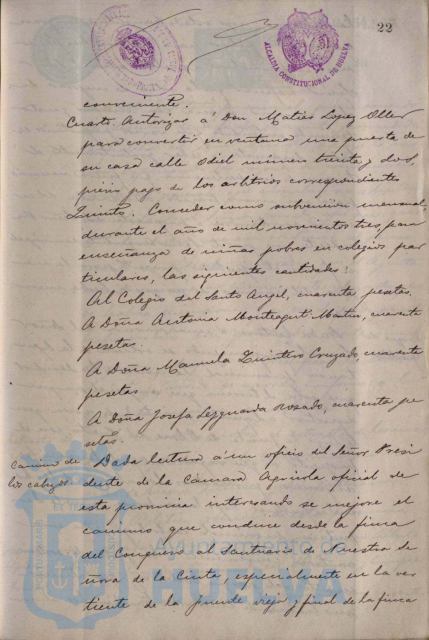 22
ALCALDIA CONSTITUCIONAL DE HUELVA
conveniente.
Cuarto. Autorizar á Don Matías Lopez Oller
para convertir en ventana una puerta de
su casa calle Odiel número treinta y dos,
prévio pago de los arbitrios correspondientes
Quinto. Conceder como subvención mensual,
durante el año de mil novecientos tres para
enseñanza de niñas pobres en colegios par
ticulares, las siguientes cantidades:
Al Colegio del Santo Angel, cuarenta pesetas.
A Doña Antonia Montagut Martin, cuarenta
pesetas.
A Doña Manuela Quintero Cruzado, cuarenta
pesetas
A Doña Josefa Rosado, cuarenta pe
setas.
Camino de
los cabezos
Dada lectura á un oficio del Señor Presi
dente de la Cámara Agrícola oficial de
esta provincia interesando se mejore el
camino que conduce desde la finca
del Conquero al Santuario de Nuestra Se
ñora de la Cinta, especialmente en la ver
tiente de la fuente vieja y final de la finca
Ayuntamiento
HUELVA